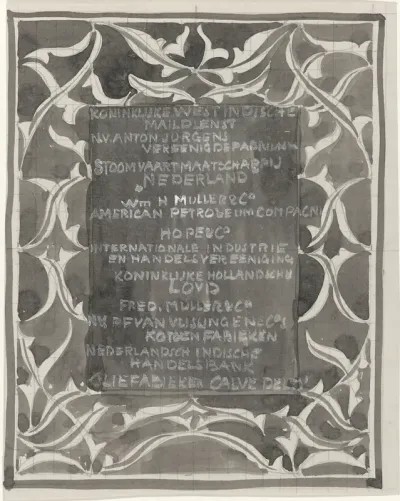 KONINKLIJKE WEST INDISCHE
MAILDIENST
N.V. ANTON JURGENS
VEREENIGDE FABRIEKEN
STOOMVAART MAATSCHAPPIJ
"NEDERLAND
Wm H MULLER & Co
AMERICAN PETROLEUM COMPAGNI
HOPE & Co
INTERNATIONALE INDUSTRIE
EN HANDELSVEREENIGING
KONINKLIJKE HOLLANDSCHE
LOYD
FRED. MULLER & Co
NV P F VAN VLISSINGEN & Co's
KATOEN FABRIEKEN
NEDERLANDSCH INDISCHE
HANDELSBANK
OLIEFABRIEKEN CALVE DELFT